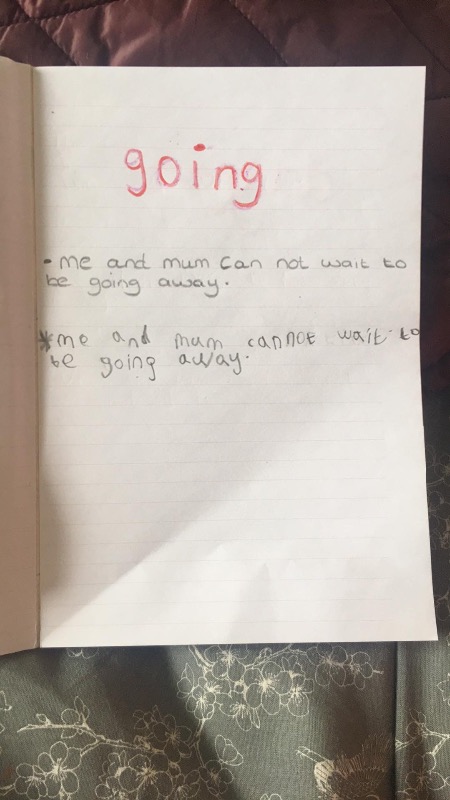 going
- me and mum can not wait to
be going away.
*me and mum cannot wait to
be going away.